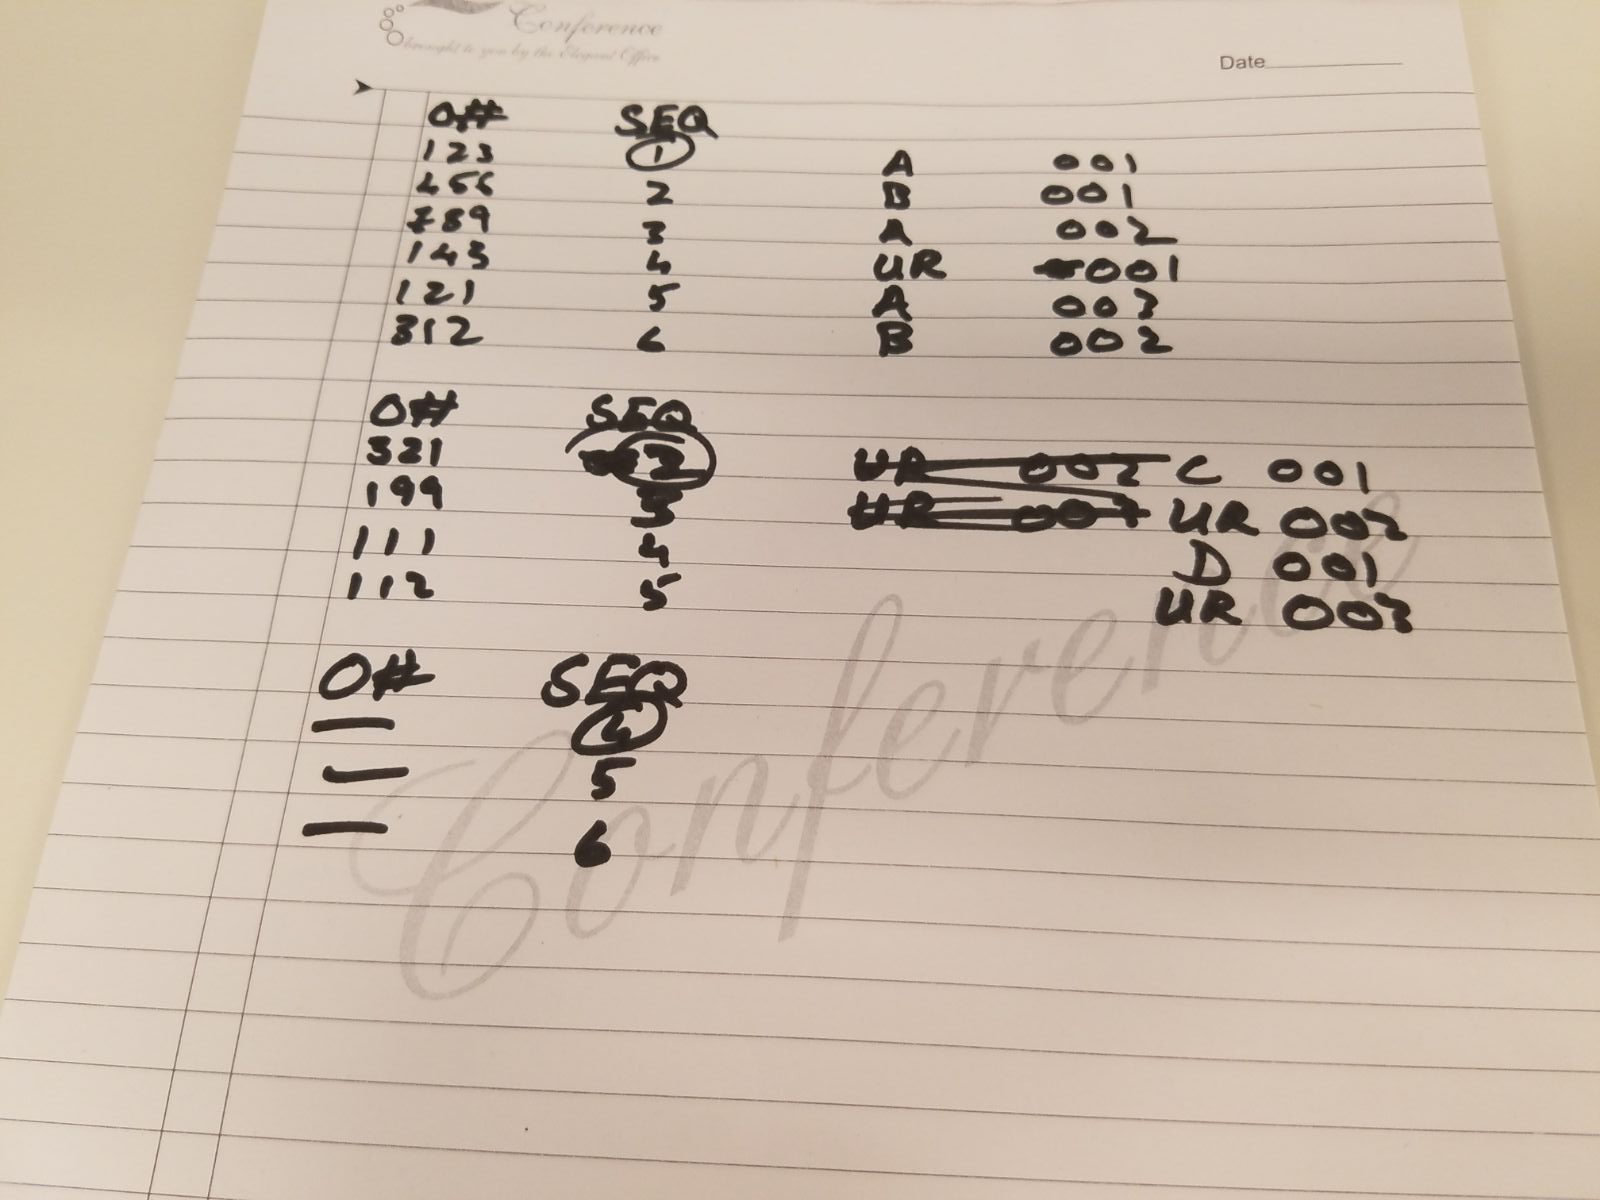 Conference
brought to you by the Elegant Office
Date
O# SEQ
123 1 A 001
456 2 B 001
789 3 A 002
143 4 UR 001
121 5 A 003
312 6 B 002
O# SEQ
321 2 UR 002 C 001
199 3 UR 003 UR 002
111 4 D 001
112 5 UR 003
O# SEQ
4
5
6
Conference